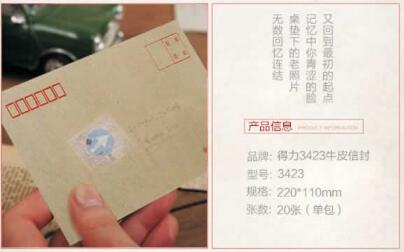 又回到最初的起点
记忆中你青涩的脸
桌垫下的老照片
无数回忆连结
产品信息 PRODUCT INFORMATION
品牌: 得力3423牛皮信封
型号: 3423
规格: 220*110mm
张数: 20张（单包）